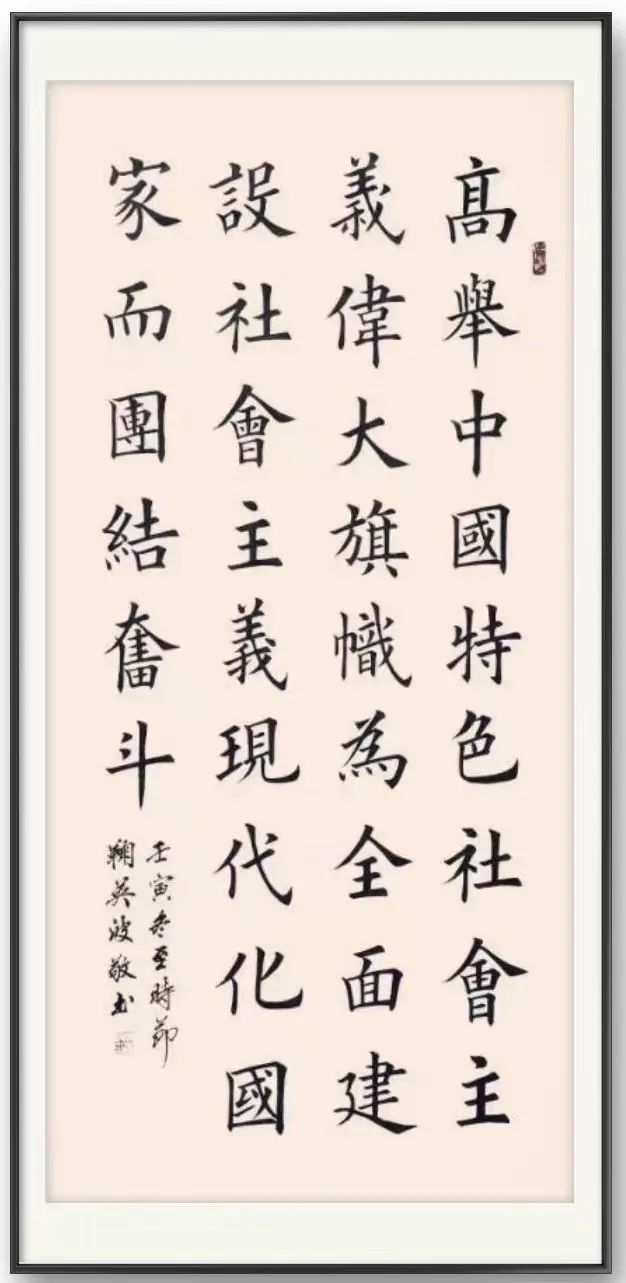 高舉中國特色社會主
義偉大旗幟為全面建
設社會主義現代化國
家而團結奮斗
壬寅冬至時節
鞠英波敬书